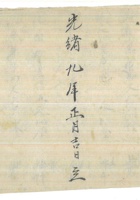 光緒九年正月吉日立